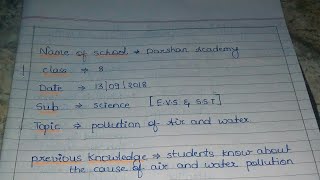 Name of school → Darshan Academy
class → 8
Date → 13/09/2018
Sub → science [E.V.S & S.S.T]
Topic → pollution of Air and water.
previous knowledge ⇒ students know about
the cause of air and water pollution